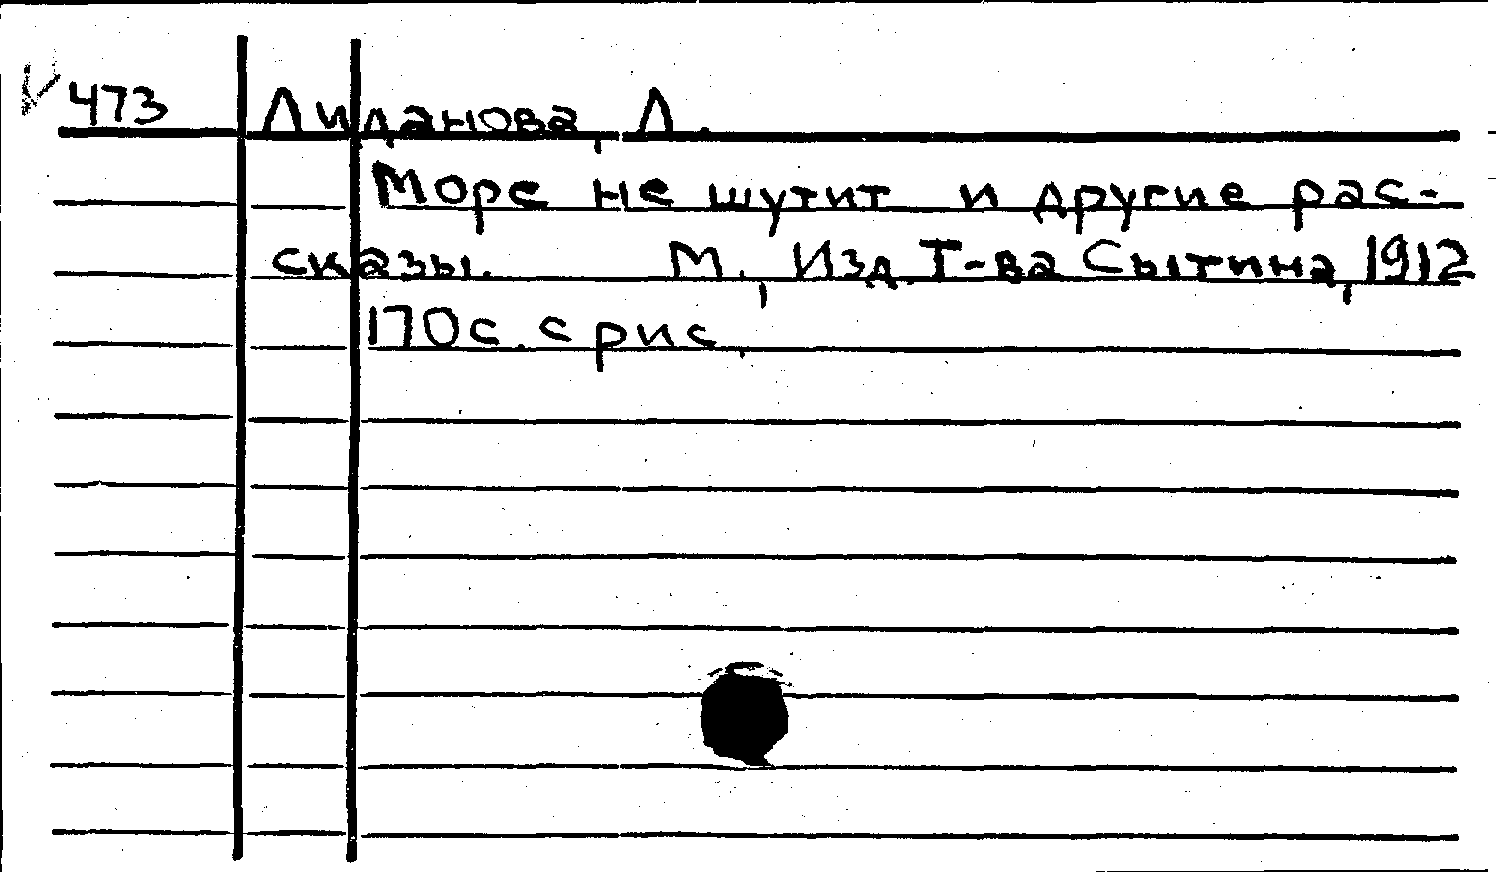 473 Лиданова, Л.
Море не шутит и другие рас-
сказы. М., Изд. Т-ва Сытина, 1912
170 с. с рис.